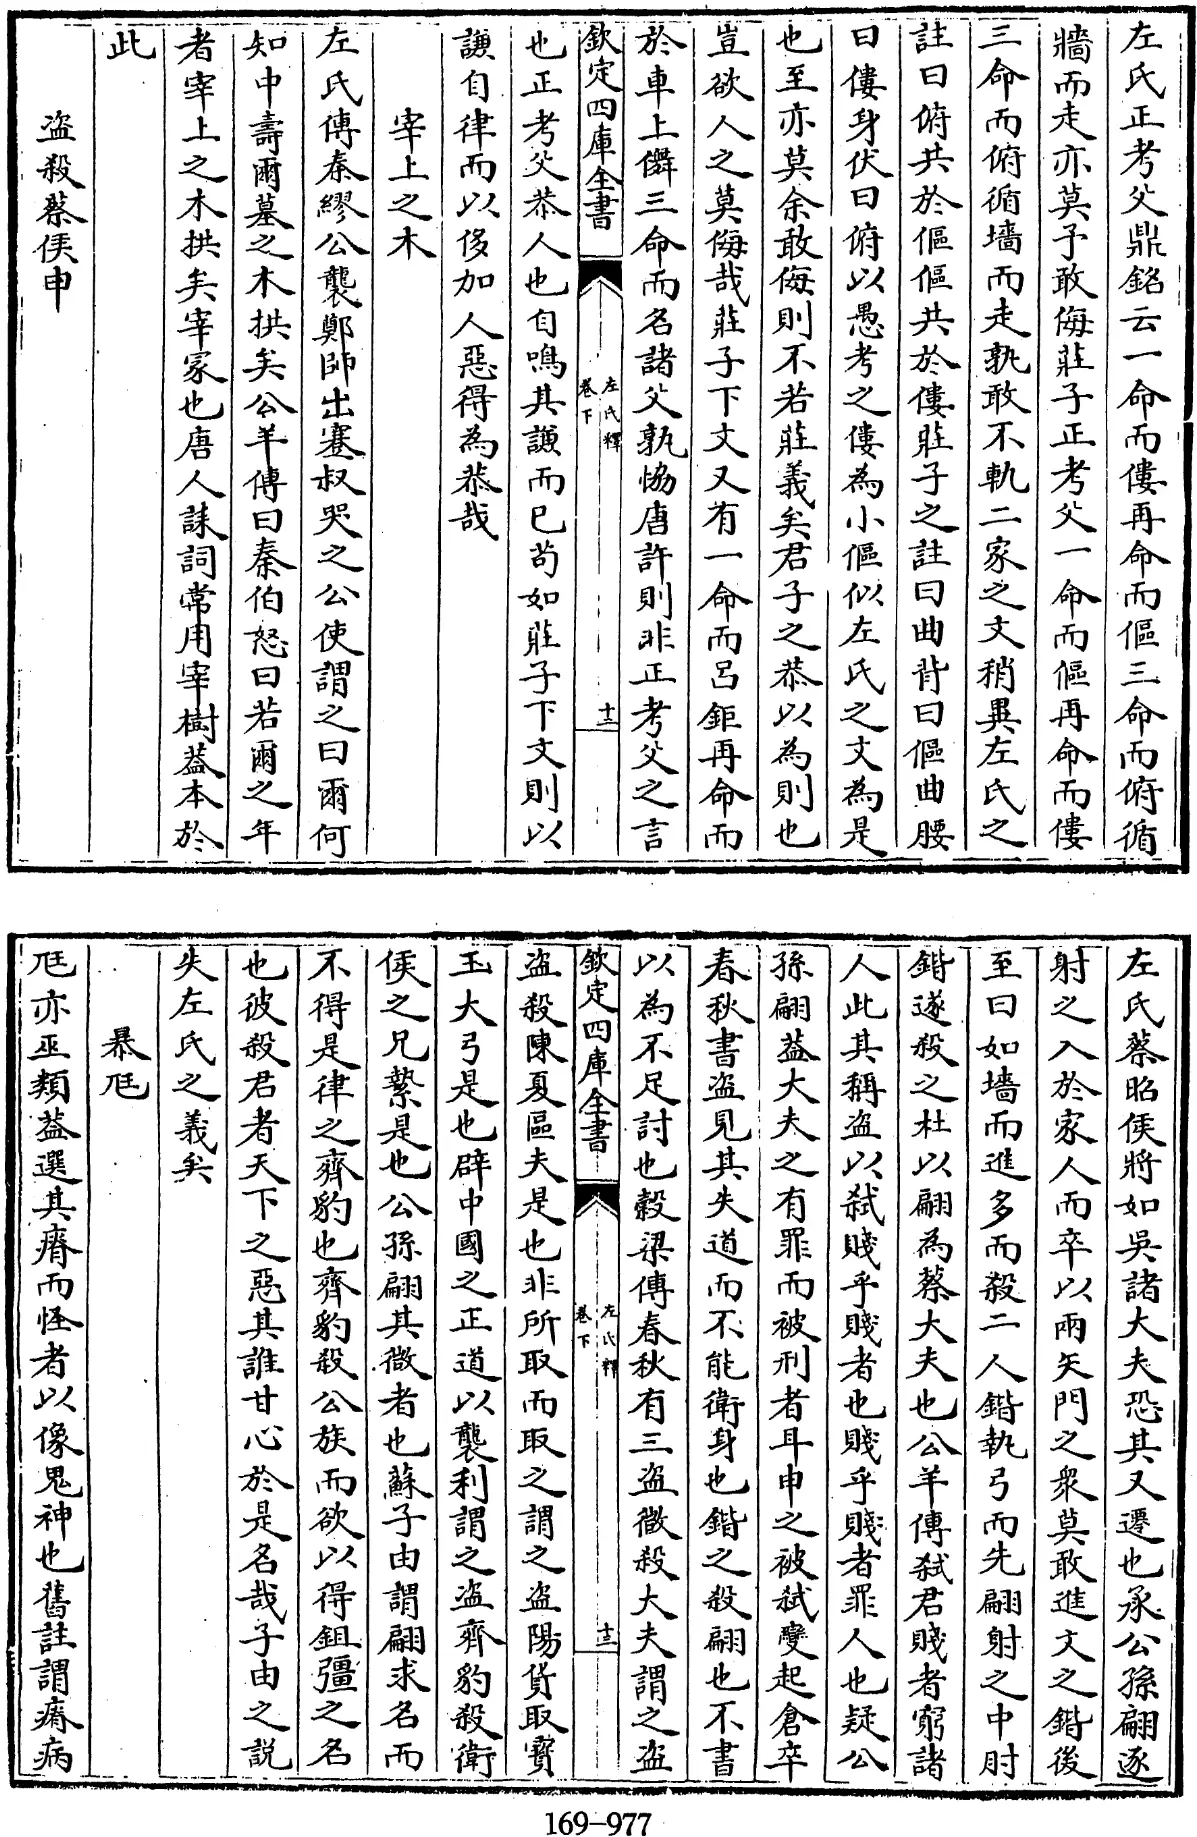 左氏正考父鼎銘云一命而僂再命而傴三命而俯循
牆而走亦莫予敢侮莊子正考父一命而傴再命而僂
三命而俯循墻而走孰敢不軌二家之文稍異左氏之
註曰俯共於傴傴共於僂莊子之註曰曲背曰傴曲腰
曰僂身伏曰俯以愚考之僂為小傴似左氏之文為是
也至亦莫余敢侮則不若莊義矣君子之恭以為則也
豈欲人之莫侮哉莊子下文又有一命而呂鉅再命而
於車上儛三命而名諸父孰協唐許則非正考父之言
欽定四庫全書
左氏釋
卷下
十三
也正考父恭人也自鳴其謙而已茍如莊子下文則以
謙自律而以侈加人惡得為恭哉
宰上之木
左氏傳秦繆公襲鄭師出蹇叔哭之公使謂之曰爾何
知中壽爾墓之木拱矣公羊傳曰秦伯怒曰若爾之年
者宰上之木拱矣宰冢也唐人誄詞常用宰樹葢本於
此
盜殺蔡侯申
左氏蔡昭侯將如吳諸大夫恐其又遷也承公孫翩逐
射之入於家人而卒以兩矢門之衆莫敢進文之鍇後
至曰如墻而進多而殺二人鍇執弓而先翩射之中肘
鍇遂殺之杜以翩為蔡大夫也公羊傳弑君賤者窮諸
人此其稱盜以弑賤乎賤者也賤乎賤者罪人也疑公
孫翩葢大夫之有罪而被刑者耳申之被弑變起倉卒
春秋書盜見其失道而不能衛身也鍇之殺翩也不書
以為不足討也穀梁傳春秋有三盜微殺大夫謂之盜
欽定四庫全書
左氏釋
卷下
十三
盜殺陳夏區夫是也非所取而取之謂之盜陽貨取寳
玉大弓是也辟中國之正道以襲利謂之盜齊豹殺衛
侯之兄縶是也公孫翩其微者也蘇子由謂翩求名而
不得是律之齊豹也齊豹殺公族而欲以得鉏彊之名
也彼殺君者天下之惡其誰甘心於是名哉子由之説
失左氏之義矣
暴尫
尫亦巫類葢選其瘠而怪者以像鬼神也舊註謂瘠病
169-977